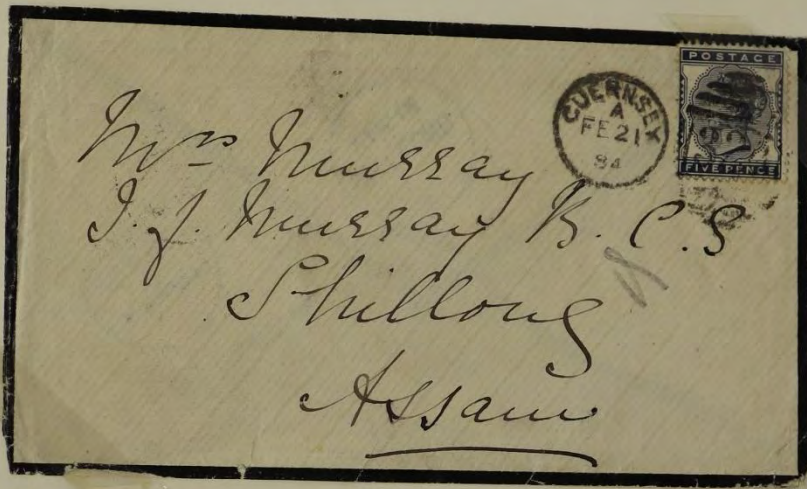 POSTAGE
FIVE PENCE
GUERNSEY
A
FE 21
84
Mrs Murray
I. J. Murray B. C. S
Shillong
Assam